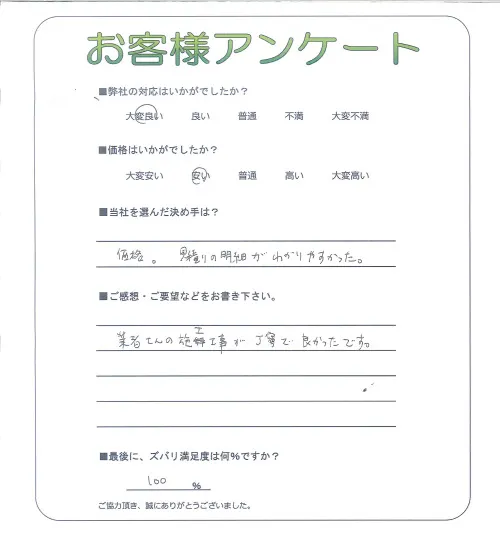 お客様アンケート
■弊社の対応はいかがでしたか？
大変良い 良い 普通 不満 大変不満
■価格はいかがでしたか？
大変安い 安い 普通 高い 大変高い
■当社を選んだ決め手は？
価格。 見積りの明細がわかりやすかった。
■ご感想・ご要望などをお書き下さい。
業者さんの施工工事が丁寧で良かったです。
■最後に、ズバリ満足度は何%ですか？
100 %
ご協力頂き、誠にありがとうございました。